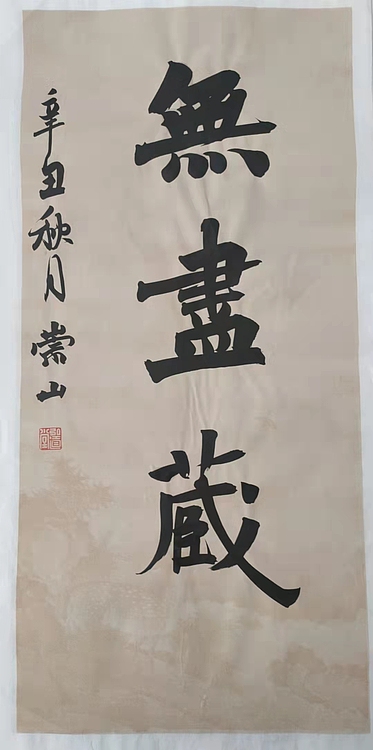 無盡蔵
辛丑秋月 崇山